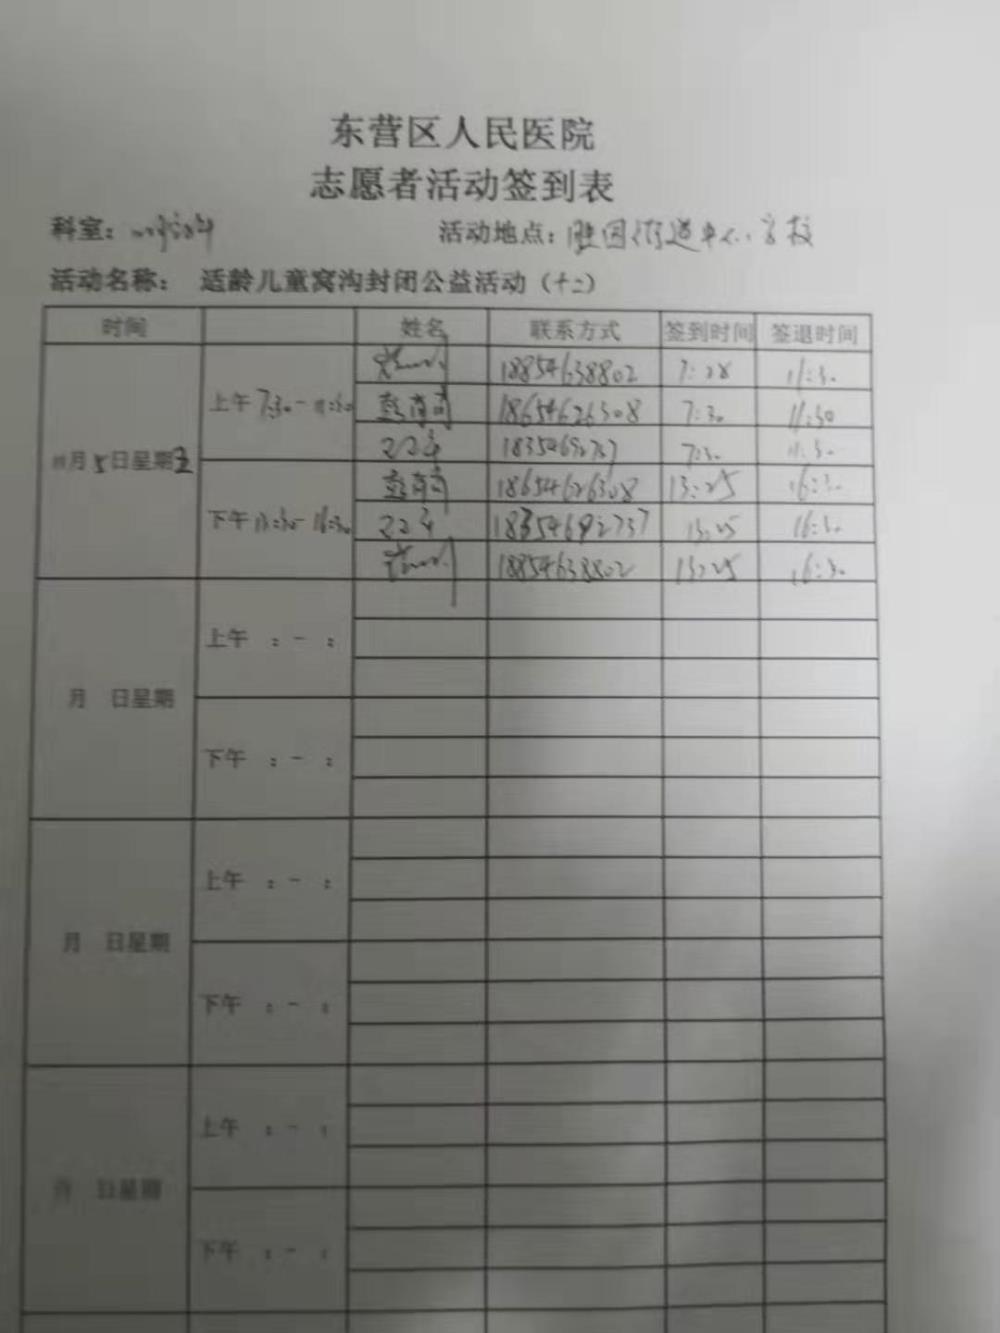 东营区人民医院
志愿者活动签到表
科室：口腔科 活动地点：胜园街道中心学校
活动名称： 适龄儿童窝沟封闭公益活动（十二）
时间 姓名 联系方式 签到时间 签退时间
11月5日星期五
上午 7:30-11:30
18854638802 7:28 11:30
彭肖肖 18654626308 7:30 11:30
7:30 11:30
下午 13:30-16:30
彭肖肖 18654626308 13:25 16:30
18354692737 13:25 16:30
18854638802 13:25 16:30
月 日星期
上午 : - :
下午 : - :
月 日星期
上午 : - :
下午 : - :
月 日星期
上午 : - :
下午 : - :